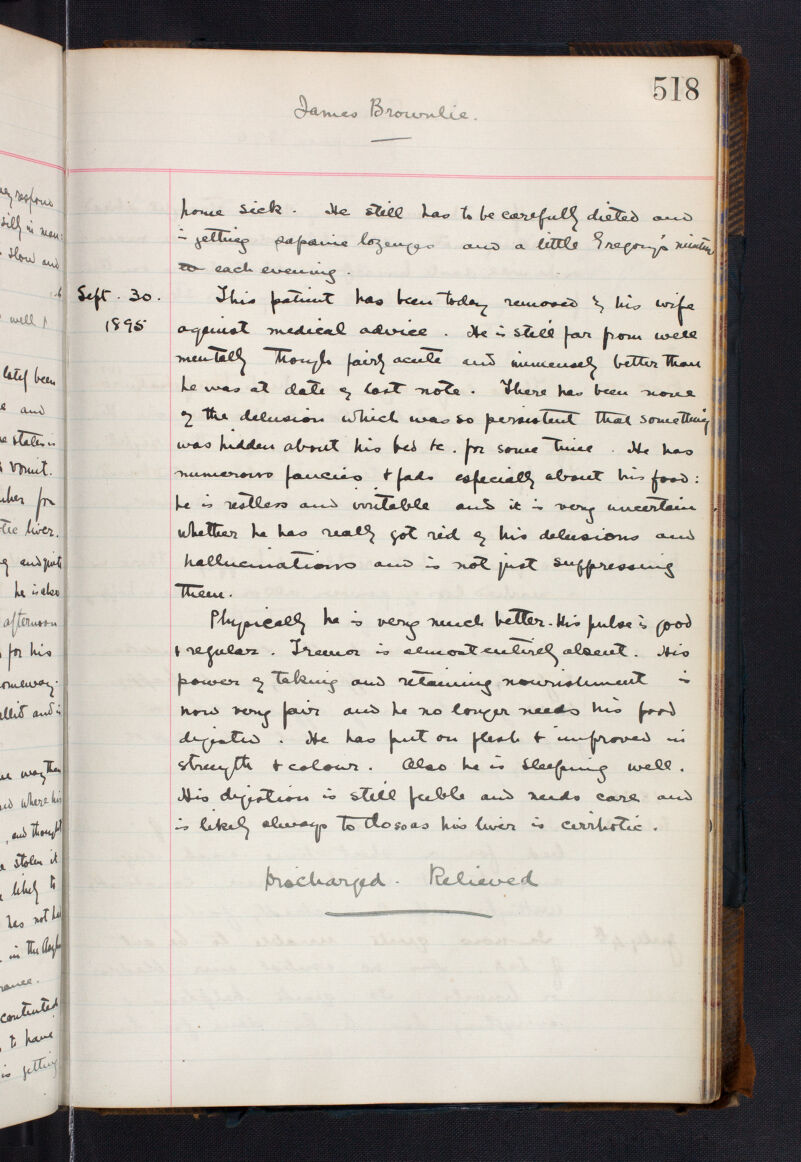 518
James Brownlie.
home sick. He still has to be carefully dieted and
is getting papaine lozenges and a little Gregory's mixture
to each evening.
Sept. 30. This patient has been today removed by his wife
1895 against medical advice. He is still far from well
mentally though fairly acute and immensely better than
he was at date of last note. There has been none
of the delusion which was so persistent that something
was hidden about his bed &c. for some time. He has
numerous fancies & fads especially about his food:
he is restless and irritable and it is very uncertain
whether he has really got rid of his delusions and
hallucinations and is not just suppressing
them.
Physically he is very much better. His pulse is good
& regular. Tremor is almost entirely absent. His
power of taking and retaining nourishment is
now very fair and he no longer needs his food
digested. He has put on flesh & improved in
strength & colour. Also he is sleeping well.
His digestion is still feeble and needs care and
is likely always to do so as his liver is cirrhotic.
Discharged. Relieved
respond
silly in man:
slow and
well
lately been
and
states is
vomit.
for
liver.
he is also
afternoon
for his
and is
way than
where his
and thought
stolen it
likely to
has not had
in the
contented
to have
is getting